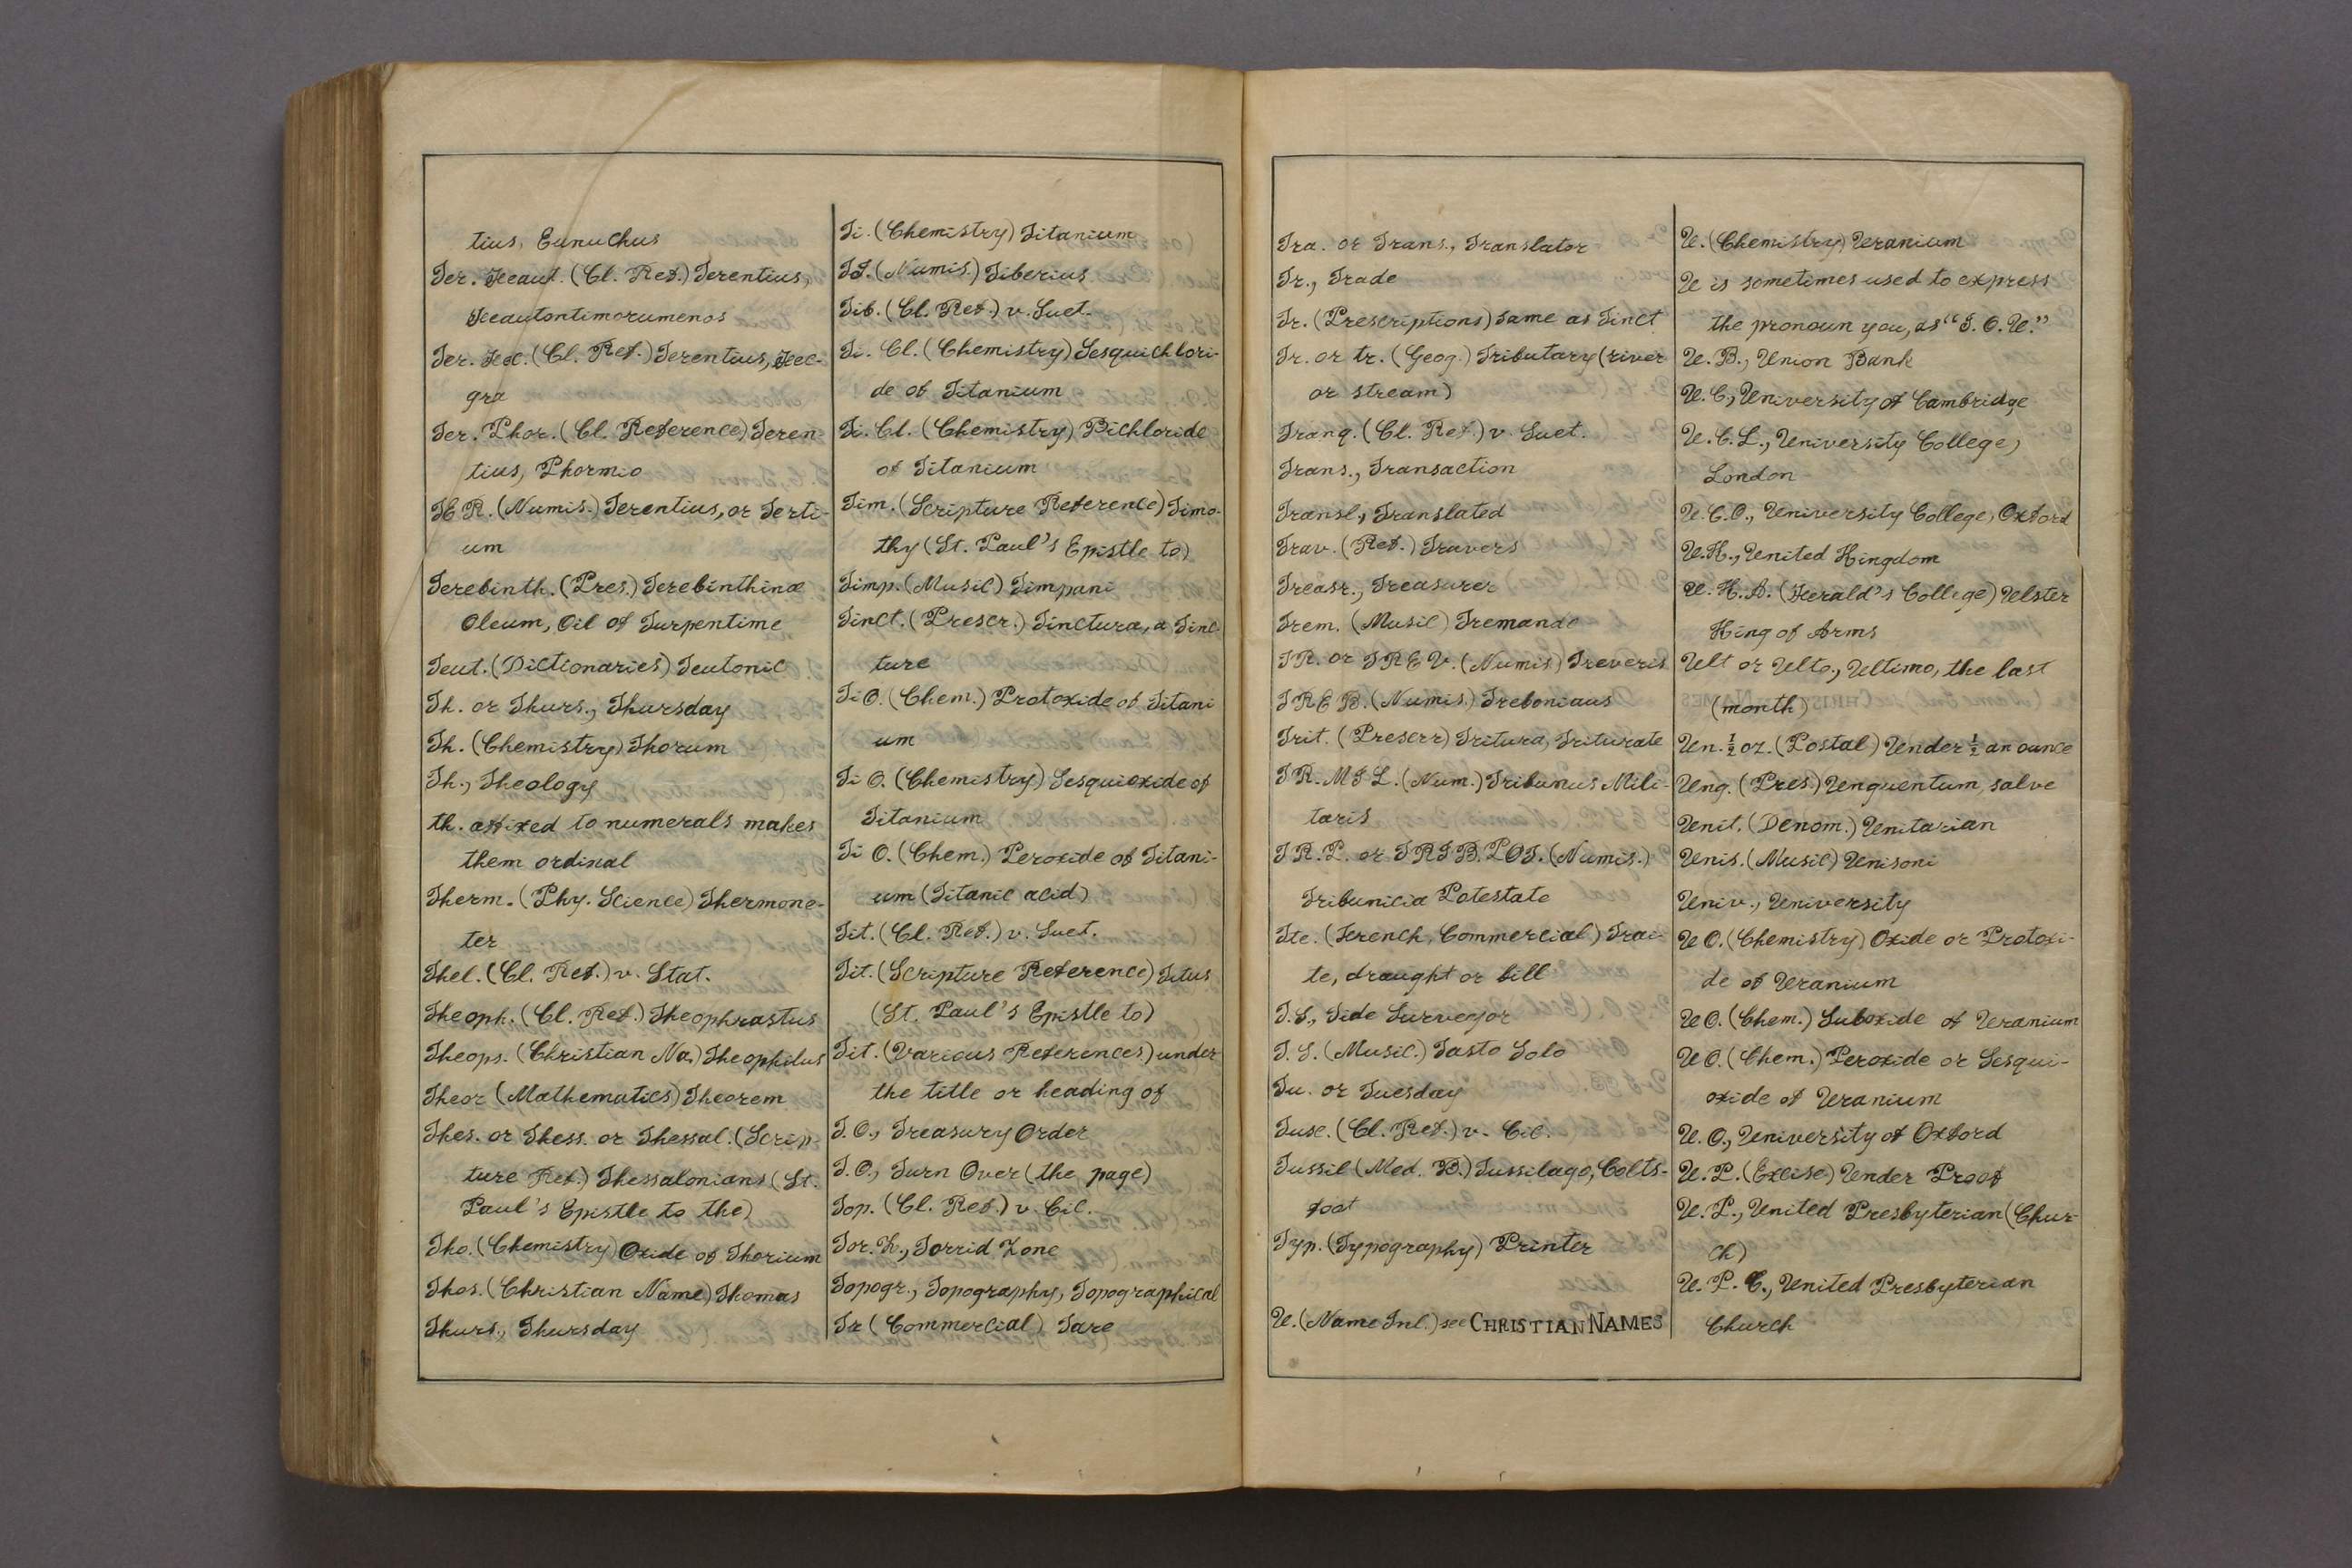 tius, Eunuchus
Ter. Heaut. (Cl. Ref.) Terentius,
Heautontimorumenos
Ter. Hec. (Cl. Ref.) Terentius, Hec-
gra
Ter. Phor. (Cl. Reference) Teren-
tius, Phormio
TER. (Numis.) Terentius, or Terti-
um
Terebinth. (Pres.) Terebinthinæ
Oleum, Oil of Turpentime
Teut. (Dictionaries) Teutonic
Th. or Thurs., Thursday
Th. (Chemistry) Thorum
Th., Theology
th. affixed to numerals makes
them ordinal
Therm. (Phy. Science) Thermone-
ter
Thel. (Cl. Ref.) v. Stat.
Theoph. (Cl. Ref.) Theophrastus
Theops. (Christian Na.) Theophilus
Theor (Mathematics) Theorem
Thes. or Thess. or Thessal. (Scrip-
ture Ref.) Thessalonians (St.
Paul's Epistle to the)
Tho. (Chemistry) Oxide of Thorium
Thos. (Christian Name) Thomas
Thurs., Thursday
Ti. (Chemistry) Titanium
TI. (Numis.) Tiberius
Tib. (Cl. Ref.) v. Suet.
Ti. Cl. (Chemistry) Sesquichlori-
de of Titanium
Ti. Cl. (Chemistry) Bichloride
of Titanium
Tim. (Scripture Reference) Timo-
thy (St. Paul's Epistle to)
Timp. (Music) Timpani
Tinct. (Prescr.) Tinctura, a Tinc-
ture
Ti O. (Chem.) Protoxide of Titani
um
Ti O. (Chemistry) Sesquioxide of
Titanium
Ti O. (Chem.) Peroxide of Titani-
um (Titanic acid)
Tit. (Cl. Ref.) v. Suet.
Tit. (Scripture Reference) Titus
(St. Paul's Epistle to)
Tit. (Various References) under
the title or heading of
T. O., Treasury Order
T. O., Turn Over (the page)
Top. (Cl. Ref.) v. Cic.
Tor. Z., Torrid Zone
Topogr., Topography, Topographical
Tr (Commercial) Tare
Tra. or Trans., Translator
Tr., Trade
Tr. (Prescriptions) same as Tinct
Tr. or tr. (Geog.) Tributary (river
or stream)
Tranq. (Cl. Ref.) v. Suet.
Trans., Transaction
Transl., Translated
Trav. (Ref.) Travers
Treasr., Treasurer
Trem. (Music) Tremande
TR. or TREV. (Numis) Treveris
TREB. (Numis.) Treboniaus
Trit. (Prescrr) Tritura, Triturate
TR. MIL. (Num.) Tribunus Mili-
taris
TR. P. or TRIB. POT. (Numis.)
Tribunicia Potestate
Tte. (French, Commercial) Trai-
te, draught or bill
T. S., Tide Surveyor
T. S. (Music.) Tasto Solo
Tu. or Tuesday
Tusc. (Cl. Ref.) v. Cic.
Tussil (Med. B.) Tussilago, Colts-
foot
Typ. (Typography) Printer
U. (Name Inl.) see CHRISTIAN NAMES
U. (Chemistry) Uranium
U is sometimes used to express
the pronoun you, as "I. O. U."
U. B., Union Bank
U. C., University of Cambridge
U. C. L., University College,
London
U. C. O., University College, Oxford
U. K., United Kingdom
U. K. A. (Herald's College) Ulster
King of Arms
Ult or Ulto., Ultimo, the last
(month)
Un. ½ oz. (Postal) Under ½ an ounce
Ung. (Pres.) Unguentum, salve
Unit. (Denom.) Unitarian
Unis. (Music) Unisoni
Univ., University
U O. (Chemistry) Oxide or Protoxi-
de of Uranium
U O. (Chem.) Suboxide of Uranium
U O. (Chem.) Peroxide or Sesqui-
oxide of Uranium
U. O., University of Oxford
U. P. (Excise) Under Proof
U. P., United Presbyterian (Chur-
ch)
U. P. C., United Presbyterian
Church